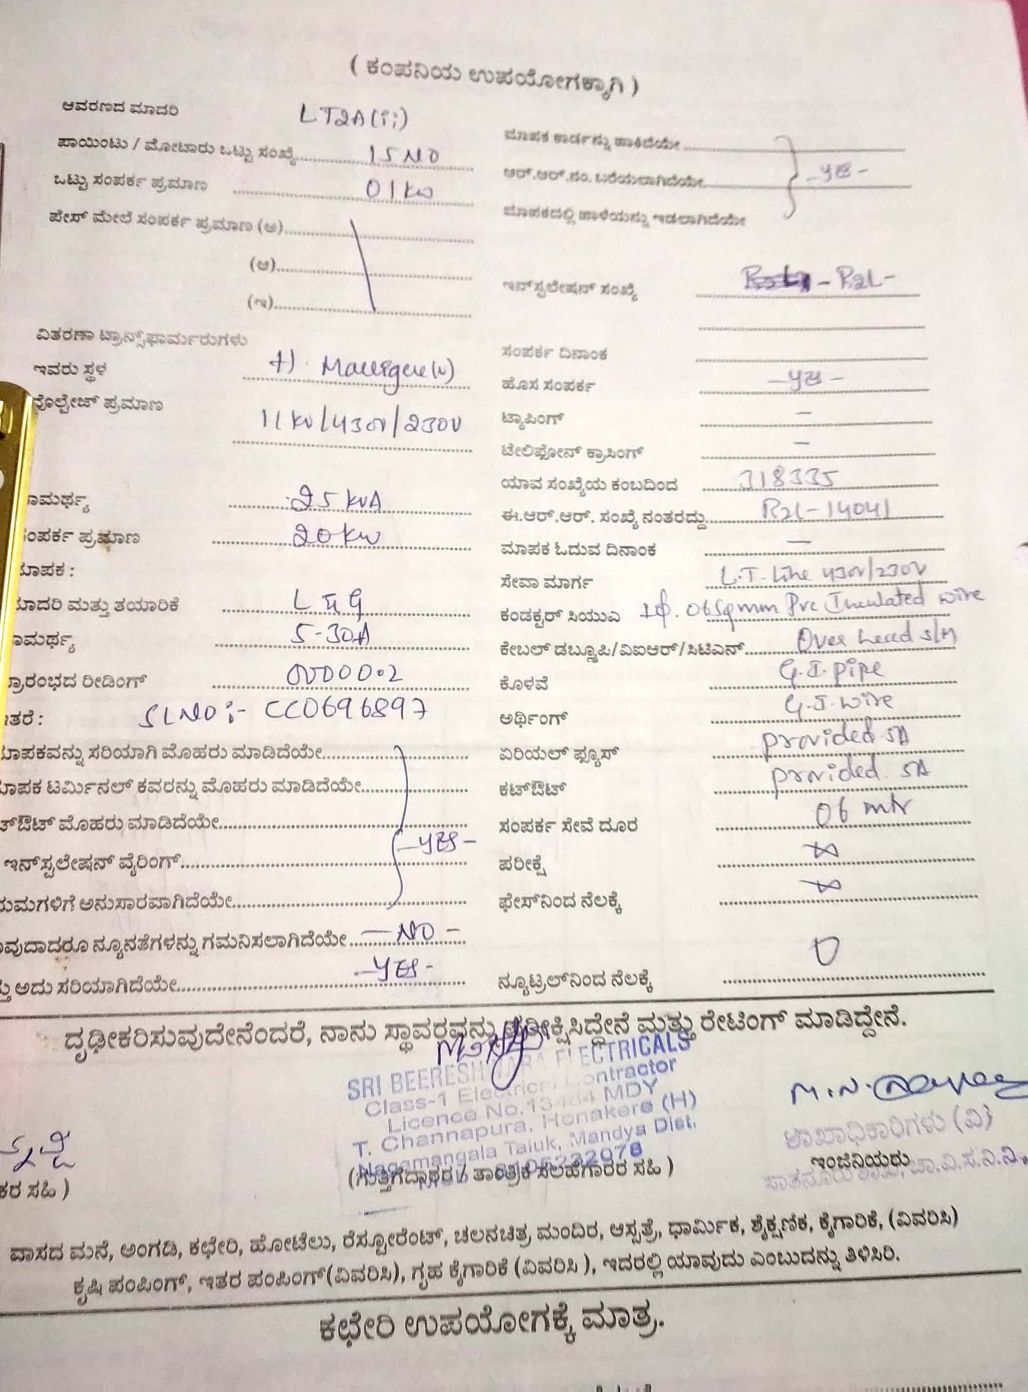 ( ಕಂಪನಿಯ ಉಪಯೋಗಕ್ಕಾಗಿ )
ಆವರಣದ ಮಾದರಿ LT2A(ii)
ಪಾಯಿಂಟು / ಮೋಟಾರು ಒಟ್ಟು ಸಂಖ್ಯೆ 15 NO
ಒಟ್ಟು ಸಂಪರ್ಕ ಪ್ರಮಾಣ 01 KW
ಪೇಸ್ ಮೇಲೆ ಸಂಪರ್ಕ ಪ್ರಮಾಣ (ಅ)
(ಆ)
(ಇ)
ವಿತರಣಾ ಟ್ರಾನ್ಸ್‌ಫಾರ್ಮರುಗಳು
ಇವರು ಸ್ಥಳ
ವೊಲ್ಟೇಜ್ ಪ್ರಮಾಣ 11 KV/430V/230V
ಾಮರ್ಥ್ಯ 25 KVA
ಂಪರ್ಕ ಪ್ರಮಾಣ 20 KW
ಮಾಪಕ :
ಮಾದರಿ ಮತ್ತು ತಯಾರಿಕೆ L & G
ಾಮರ್ಥ್ಯ 5-30A
ಪ್ರಾರಂಭದ ರೀಡಿಂಗ್ 00000.2
ಇತರೆ : SL NO :- CC0696897
ಮಾಪಕವನ್ನು ಸರಿಯಾಗಿ ಮೊಹರು ಮಾಡಿದೆಯೇ
ಮಾಪಕ ಟರ್ಮಿನಲ್ ಕವರನ್ನು ಮೊಹರು ಮಾಡಿದೆಯೇ
ಟ್‌ಔಟ್ ಮೊಹರು ಮಾಡಿದೆಯೇ
ಇನ್‌ಸ್ಟಲೇಷನ್ ವೈರಿಂಗ್ -YES-
ಯಮಗಳಿಗೆ ಅನುಸಾರವಾಗಿದೆಯೇ
ವುದಾದರೂ ನ್ಯೂನತೆಗಳನ್ನು ಗಮನಿಸಲಾಗಿದೆಯೇ - NO -
ತ್ತು ಅದು ಸರಿಯಾಗಿದೆಯೇ -YES-
ಮಾಪಕ ಕಾರ್ಡನ್ನು ಹಾಕಿದೆಯೇ
ಆರ್.ಆರ್.ನಂ. ಬರೆಯಲಾಗಿದೆಯೇ -YES-
ಮಾಪಕದಲ್ಲಿ ಹಾಳೆಯನ್ನು ಇಡಲಾಗಿದೆಯೇ
ಇನ್‌ಸ್ಟಲೇಷನ್ ಸಂಖ್ಯೆ - R2L-
ಸಂಪರ್ಕ ದಿನಾಂಕ
ಹೊಸ ಸಂಪರ್ಕ -YES-
ಟ್ಯಾಪಿಂಗ್ -
ಟೇಲಿಫೋನ್ ಕ್ರಾಸಿಂಗ್ -
ಯಾವ ಸಂಖ್ಯೆಯ ಕಂಬದಿಂದ 318335
ಈ.ಆರ್.ಆರ್. ಸಂಖ್ಯೆ ನಂತರದ್ದು R2L-14041
ಮಾಪಕ ಓದುವ ದಿನಾಂಕ -
ಸೇವಾ ಮಾರ್ಗ L.T. Line 430V/230V
ಕಂಡಕ್ಟರ್ ಸಿಯುವಿ 1ɸ. 06sqmm Pvc Insulated wire
ಕೇಬಲ್ ಡಬ್ಲ್ಯೂಪಿ/ವಿಐಆರ್/ಸಿಟಿಎನ್ Over head S/M
ಕೊಳವೆ G.I. pipe
ಅರ್ಥಿಂಗ್ G.I. wire
ಏರಿಯಲ್ ಫ್ಯೂಸ್ provided 5A
ಕಟ್‌ಔಟ್ provided 5A
ಸಂಪರ್ಕ ಸೇವೆ ದೂರ 06 mtr
ಪರೀಕ್ಷೆ
ಫೇಸ್‌ನಿಂದ ನೆಲಕ್ಕೆ
ನ್ಯೂಟ್ರಲ್‌ನಿಂದ ನೆಲಕ್ಕೆ 0
ದೃಢೀಕರಿಸುವುದೇನೆಂದರೆ, ನಾನು ಸ್ಥಾವರವನ್ನು ಪರೀಕ್ಷಿಸಿದ್ದೇನೆ ಮತ್ತು ರೇಟಿಂಗ್ ಮಾಡಿದ್ದೇನೆ.
SRI BEERESHWARA ELECTRICALS
Class-1 Electrical Contractor
Licence No.13484 MDY
T. Channapura, Honakere (H)
Nagamangala Taluk, Mandya Dist.
ಶಾಖಾಧಿಕಾರಿಗಳು (ವಿ)
ಕರ ಸಹಿ )
(ಗುತ್ತಿಗೆದಾರರ / ತಾಂತ್ರಿಕ ಸಲಹೆಗಾರರ ಸಹಿ )
ಇಂಜಿನಿಯರು
ವಾಸದ ಮನೆ, ಅಂಗಡಿ, ಕಛೇರಿ, ಹೋಟೆಲು, ರೆಸ್ಟೋರೆಂಟ್, ಚಲನಚಿತ್ರ ಮಂದಿರ, ಆಸ್ಪತ್ರೆ, ಧಾರ್ಮಿಕ, ಶೈಕ್ಷಣಿಕ, ಕೈಗಾರಿಕೆ, (ವಿವರಿಸಿ)
ಕೃಷಿ ಪಂಪಿಂಗ್, ಇತರ ಪಂಪಿಂಗ್(ವಿವರಿಸಿ), ಗೃಹ ಕೈಗಾರಿಕೆ (ವಿವರಿಸಿ ), ಇದರಲ್ಲಿ ಯಾವುದು ಎಂಬುದನ್ನು ತಿಳಿಸಿರಿ.
ಕಛೇರಿ ಉಪಯೋಗಕ್ಕೆ ಮಾತ್ರ.